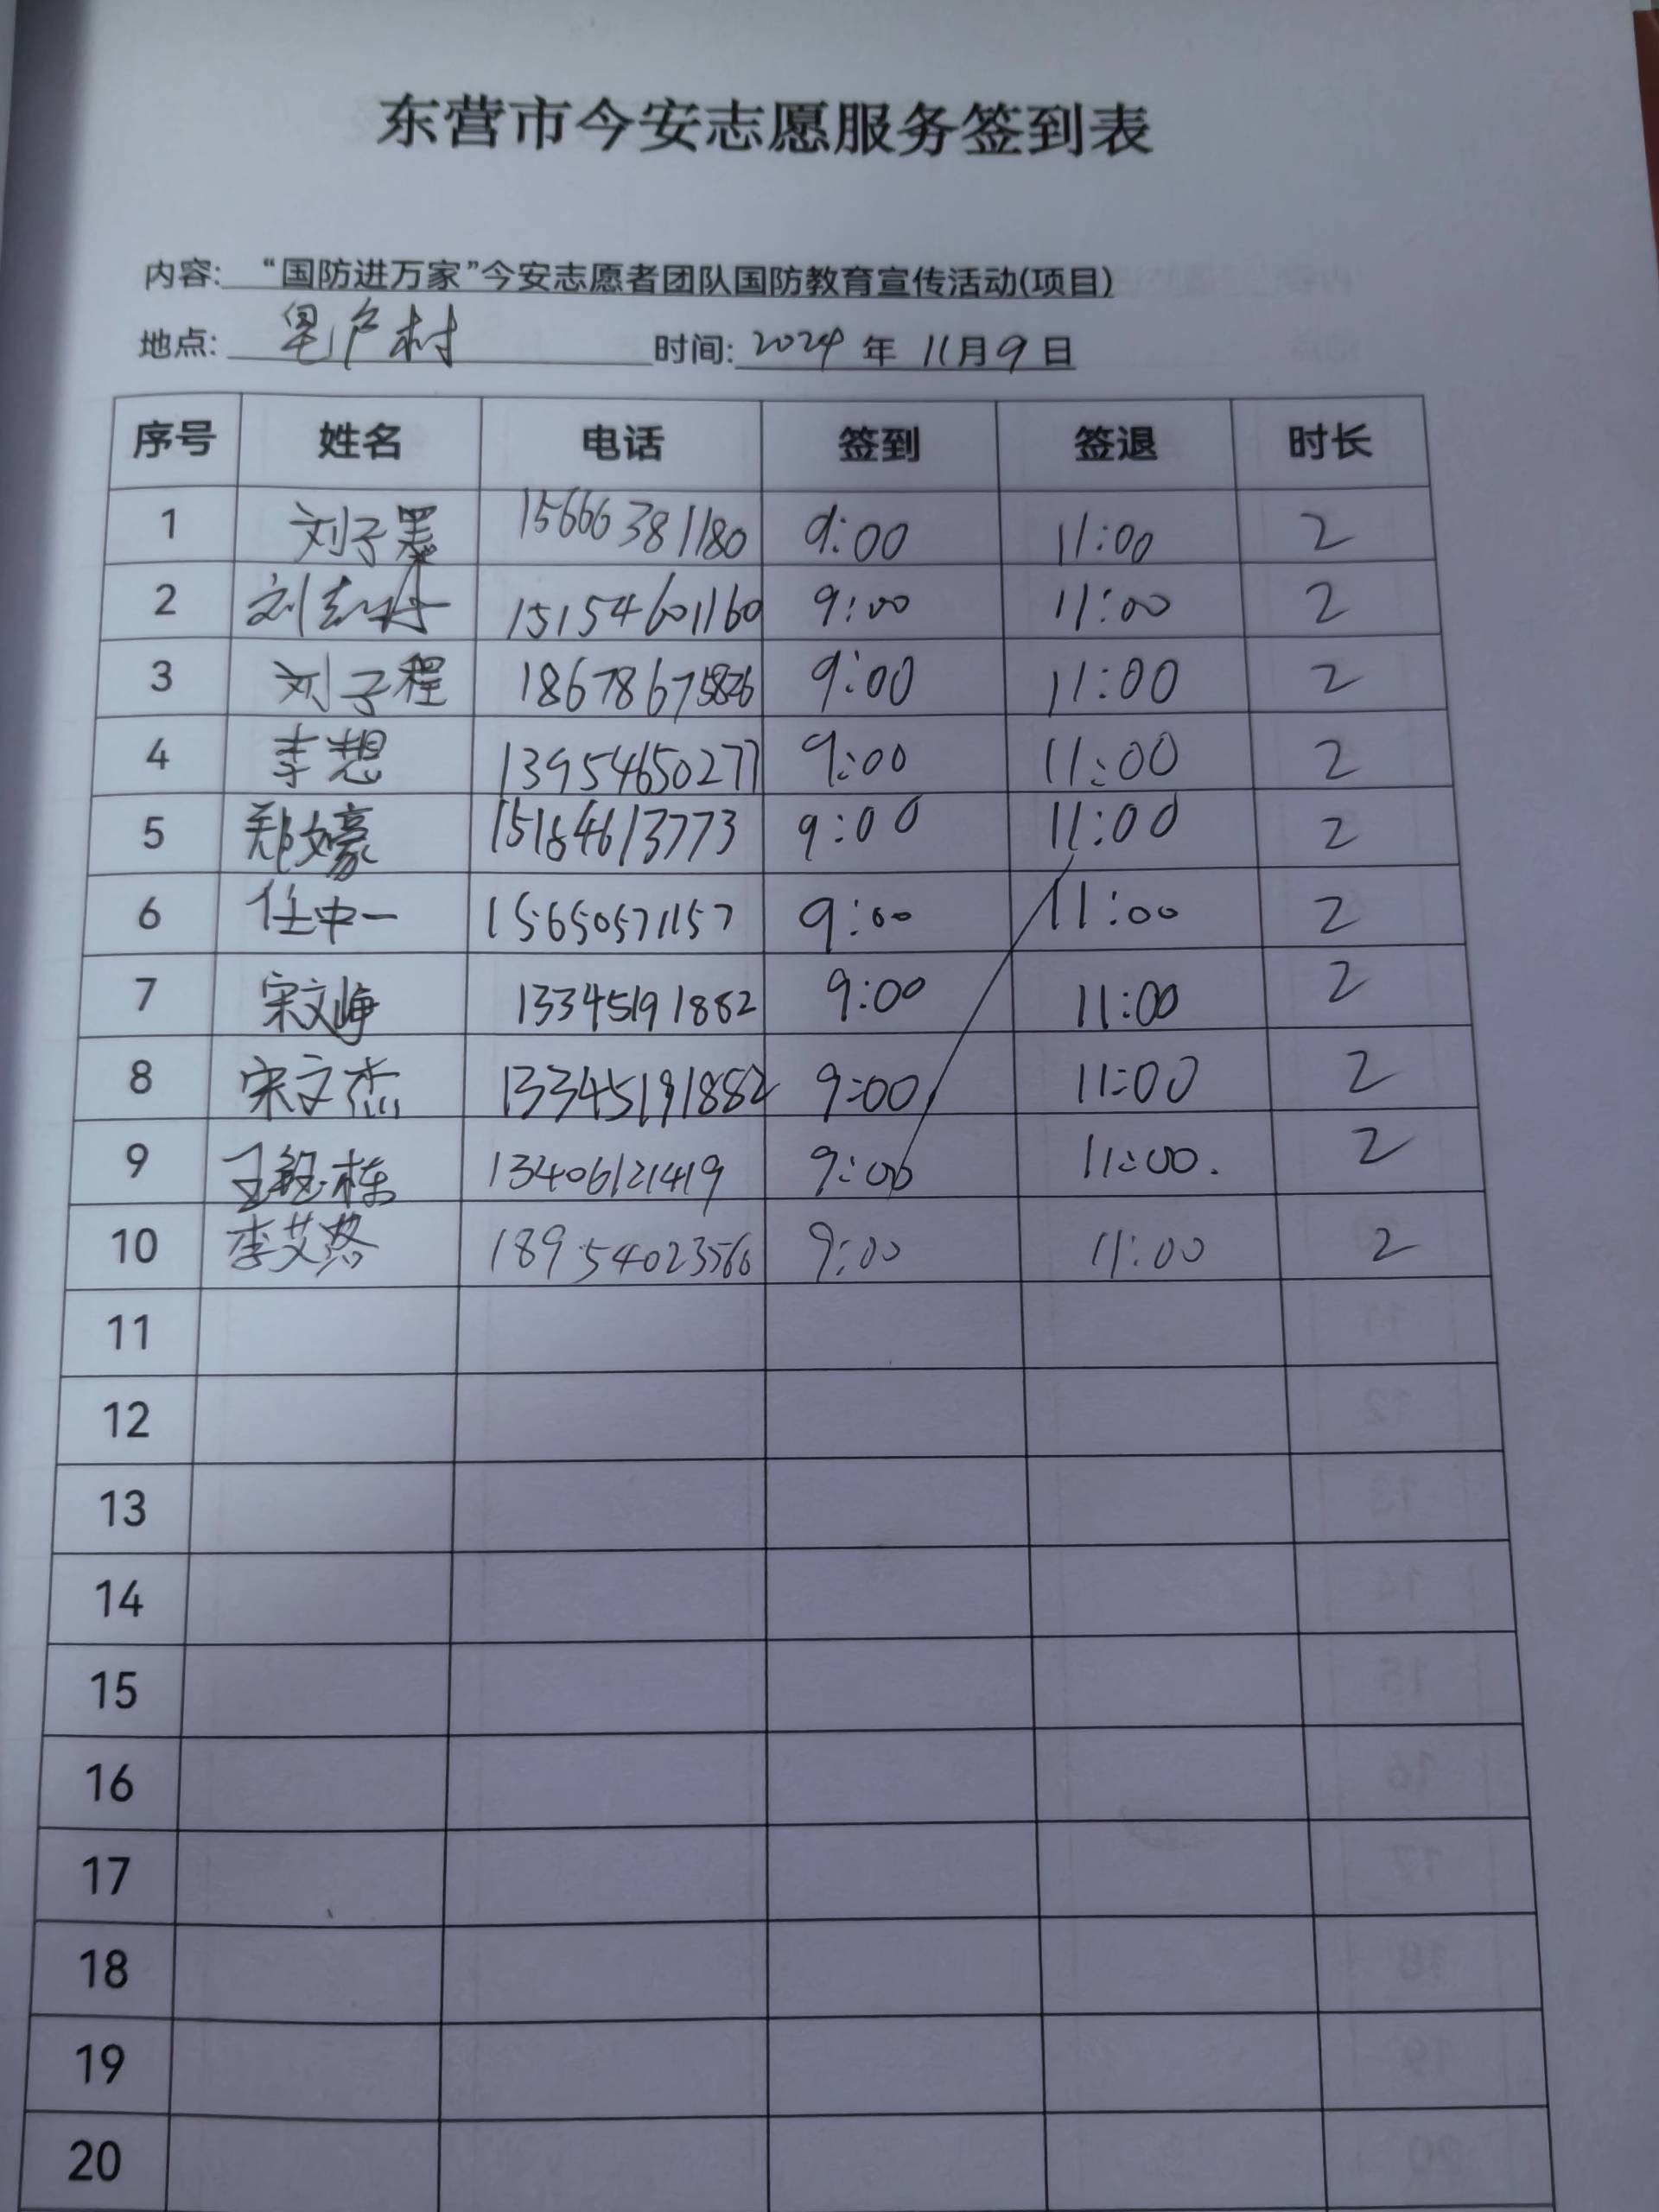 东营市今安志愿服务签到表
内容: “国防进万家”今安志愿者团队国防教育宣传活动(项目)
地点: 户村 时间: 2024 年 11月 9 日
序号 姓名 电话 签到 签退 时长
1 刘子墨 15666381180 9:00 11:00 2
2 刘 15154601160 9:00 11:00 2
3 刘子程 18678675826 9:00 11:00 2
4 李想 13954650277 9:00 11:00 2
5 郑文豪 15184613773 9:00 11:00 2
6 任中一 15650571157 9:00 11:00 2
7 宋文峥 13345191882 9:00 11:00 2
8 宋文杰 13345191882 9:00 11:00 2
9 王 栋 13406121419 9:00 11:00. 2
10 李艾 18954023566 9:00 11:00 2
11
12
13
14
15
16
17
18
19
20